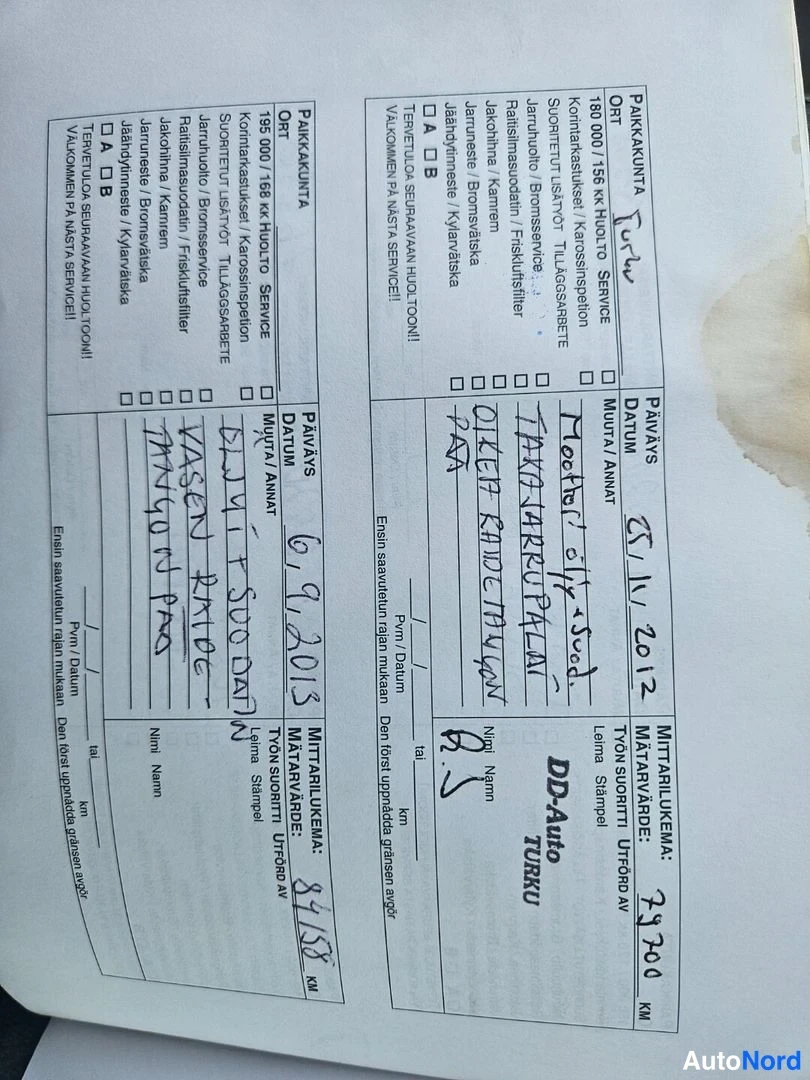 PAIKKAKUNTA Turku
ORT
PÄIVÄYS 25,11,2012
DATUM
MITTARILUKEMA: 79700 KM
MÄTARVÄRDE:
180 000 / 156 KK HUOLTO SERVICE
Korintarkastukset / Karossinspetion
SUORITETUT LISÄTYÖT TILLÄGGSARBETE
Jarruhuolto / Bromsservice
Raitisilmasuodatin / Friskluftsfilter
Jakohihna / Kamrem
Jarruneste / Bromsvätska
Jäähdytinneste / Kylarvätska
A B
TERVETULOA SEURAAVAAN HUOLTOON!!
VÄLKOMMEN PÅ NÄSTA SERVICE!!
MUUTA / ANNAT
Moottori öljy + Suod.
TAKAJARRUPALAT
OIKEA RAIDETANGON
PÄÄ
TYÖN SUORITTI UTFÖRD AV
Leima Stämpel
DD-Auto
TURKU
Nimi Namn
/ / tai km
Pvm / Datum
Ensin saavutetun rajan mukaan Den först uppnådda gränsen avgör
PAIKKAKUNTA
ORT
PÄIVÄYS 6,9,2013
DATUM
MITTARILUKEMA: 84158 KM
MÄTARVÄRDE:
195 000 / 168 KK HUOLTO SERVICE
Korintarkastukset / Karossinspetion
SUORITETUT LISÄTYÖT TILLÄGGSARBETE
Jarruhuolto / Bromsservice
Raitisilmasuodatin / Friskluftsfilter
Jakohihna / Kamrem
Jarruneste / Bromsvätska
Jäähdytinneste / Kylarvätska
A B
TERVETULOA SEURAAVAAN HUOLTOON!!
VÄLKOMMEN PÅ NÄSTA SERVICE!!
MUUTA / ANNAT
ÖLJY + SUODATIN
VASEN RAIDE-
TANGON PÄÄ
TYÖN SUORITTI UTFÖRD AV
Leima Stämpel
Nimi Namn
/ / tai km
Pvm / Datum
Ensin saavutetun rajan mukaan Den först uppnådda gränsen avgör
AutoNord